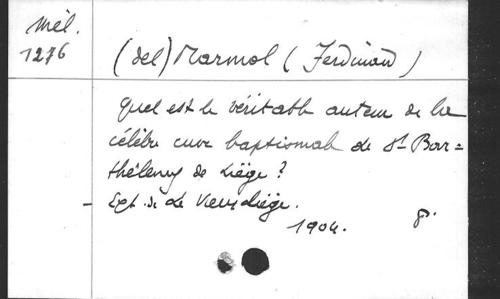 Mél.
1276
(del) Marmol (Ferdinand)
Quel est le véritable auteur de la
célèbre cuve baptismale de St Bar=
thélemy de Liège?
- Ext. de Le Vieux Liège.
1904. 8.